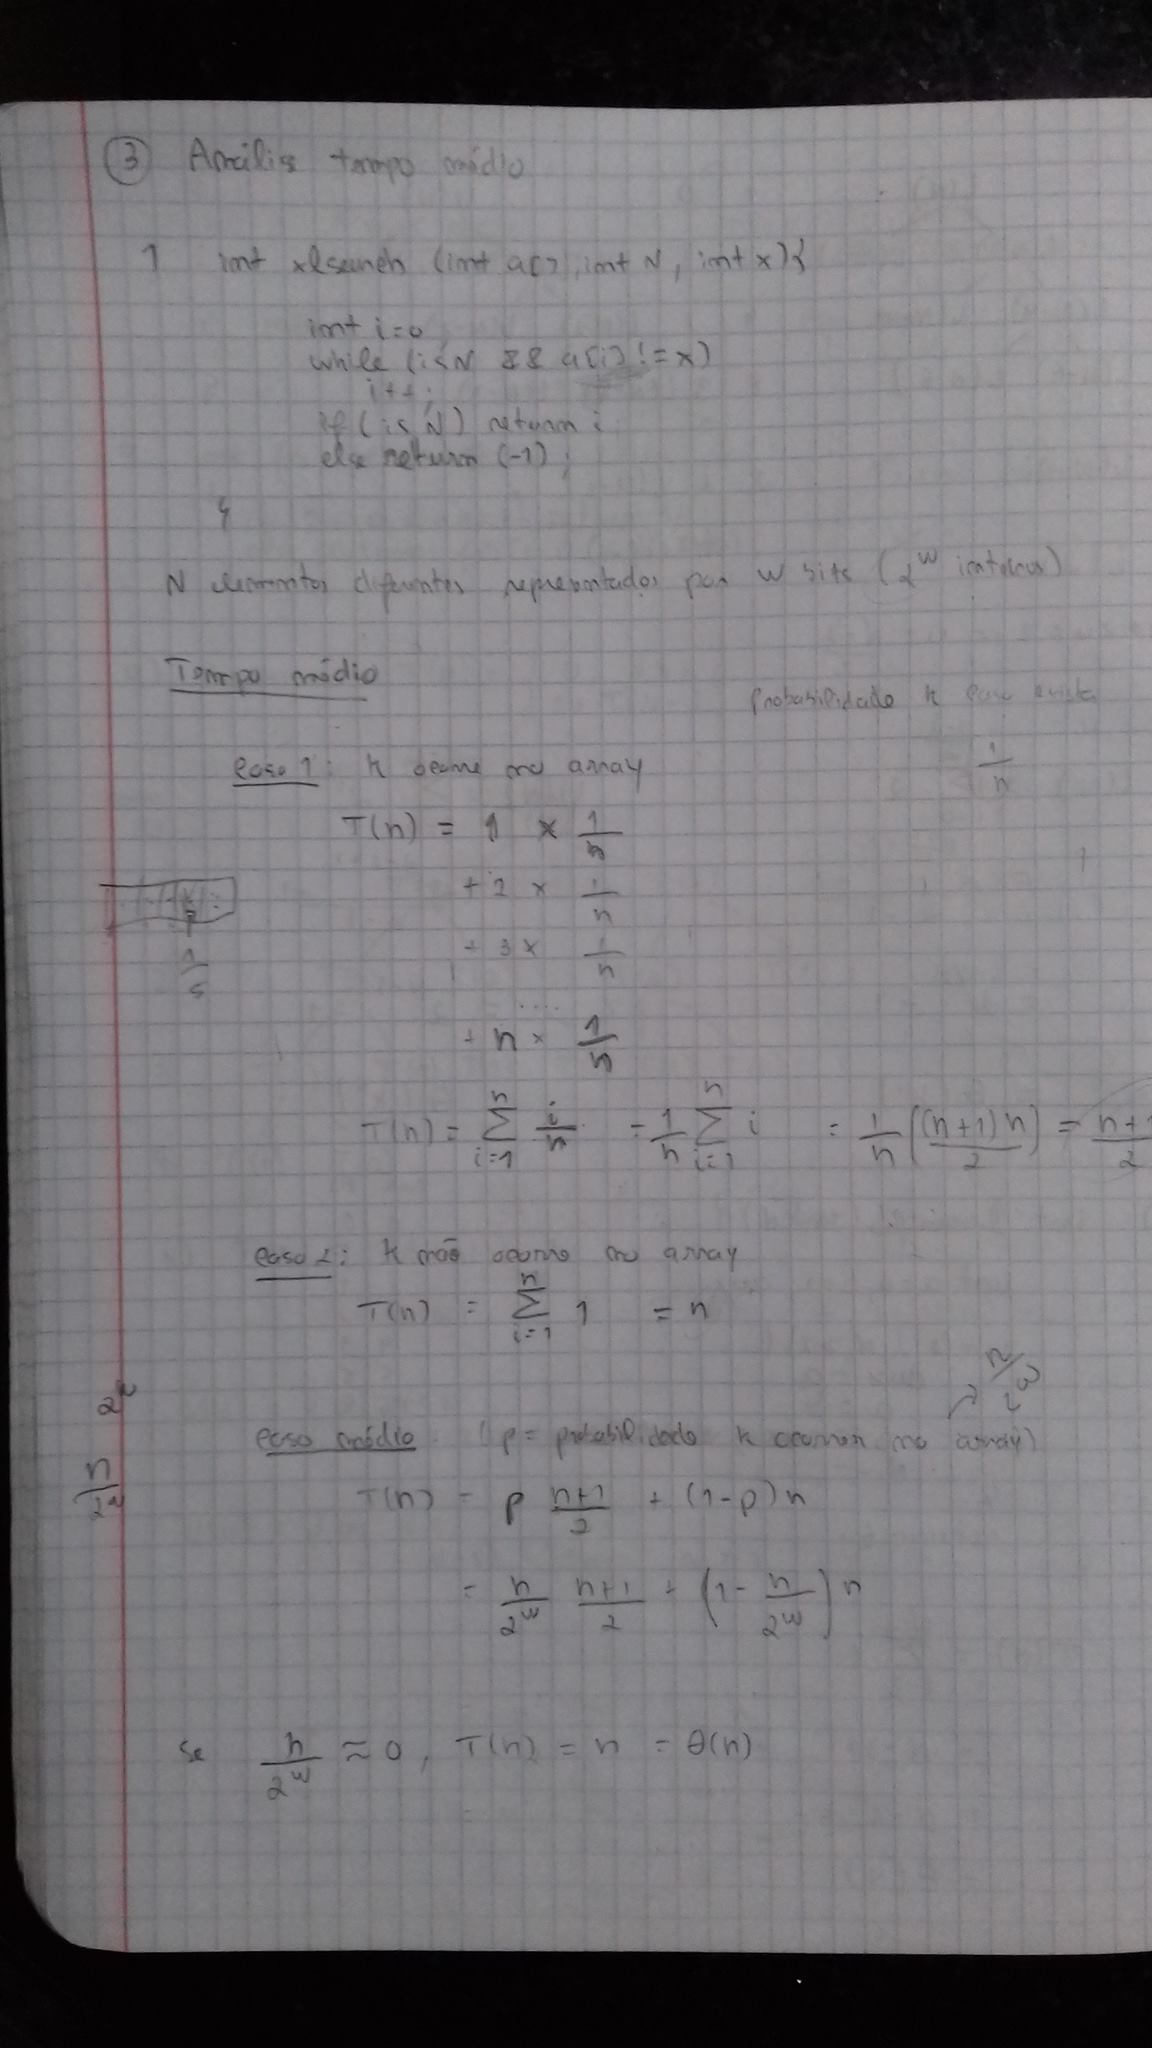 ③ Análise tempo médio
1 int xlsearch (int a[], int N, int x){
int i=0
while (i<N && a[i] != x)
i++;
if (i<N) return i
else return (-1);
}
N elementos diferentes representados por w bits (2^w inteiros)
Tempo médio
Probabilidade k
caso 1: k ocorre no array
1/n
T(n) = 1 × 1/n
+ 2 × 1/n
+ 3 × 1/n
1/5
....
+ n × 1/n
T(n) = ∑_{i=1}^{n} i/n = 1/n ∑_{i=1}^{n} i = 1/n ((n+1)n/2) = n+1/2
caso 2: k não ocorre no array
T(n) = ∑_{i=1}^{n} 1 = n
n/2^w
caso médio (p = probabilidade k ocorrer no array)
n/2^w
T(n) = p n+1/2 + (1-p)n
= n/2^w n+1/2 + (1 - n/2^w) n
se n/2^w ≈ 0, T(n) = n = θ(n)